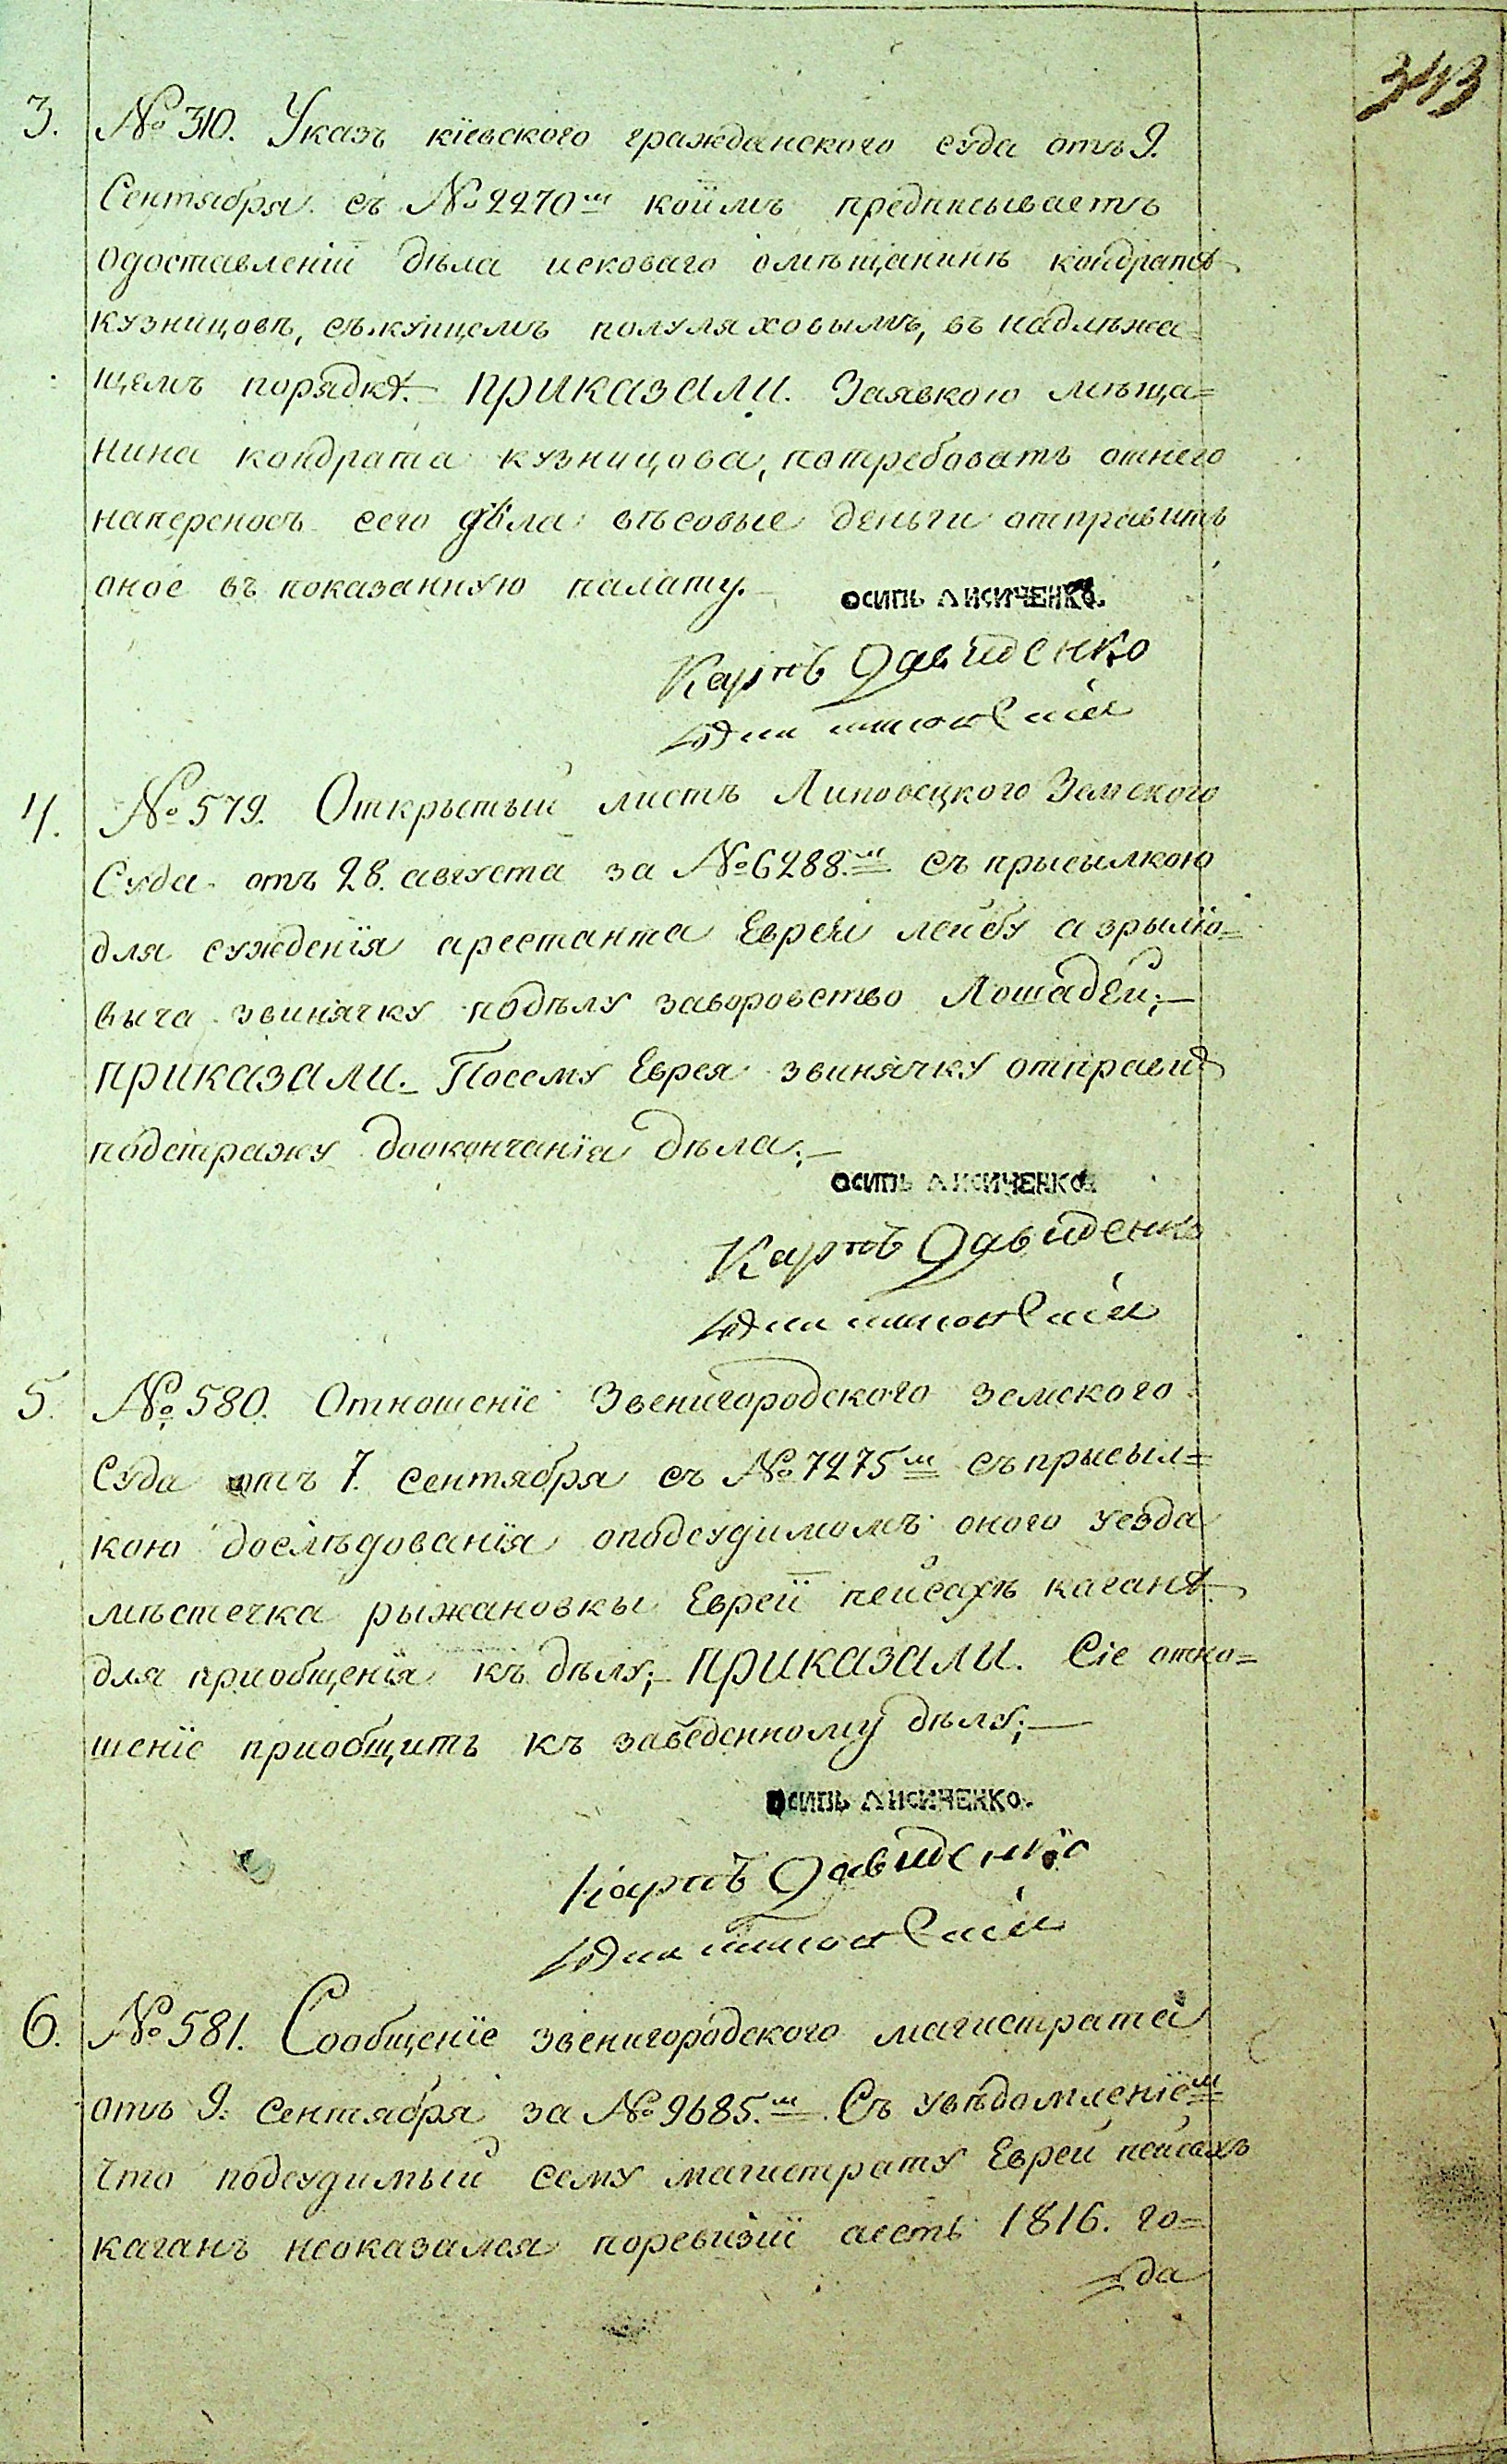 343
3. № 310. Указъ кіевского гражданского суда отъ 9.
Сентября съ № 2270м коимъ предписываетъ
одоставленіи дѣла исковаго омѣщанинѣ кондратѣ
кузницовѣ, съкупцемъ полуляховымъ, въ надлѣжа=
щемъ порядкѣ. приказали. Заявкою мѣща=
нина кондрата кузницова, потребовать отнего
напереносъ сего дѣла вѣсовые деньги отправить
оное въ показанную палату.
осипь Лисиченко.
Карпъ Давиденко
4. № 579. Открытый листъ Липовецкого Земского
Суда отъ 28. августа за № 6288.м съ прысылкою
для сужденїя арестанта Еврея лейбу азрылїо=
выча звинячкуподѣлу заворовство Лошадей;—
приказали. Посему Еврея звинячку отправить
подстражу доокончанїя дѣла;—
осипь Лисиченко.
Карпъ Давиденко
5. № 580. Отношенїе Звенигородского земского
Суда отъ 7. сентября съ № 7275м съ присыл=
кою дослѣдованїя оподсудимомъ оного уезда
мѣстечка рыжановкы Еврей пейсахѣ каганѣ
для приобщенїя къ дѣлу;— приказали. Сіе отно=
шенїе приобщить къ заведенному дѣлу;—
осипь Лисиченко.
Карпъ Давиденко
6. № 581. Сообщенїе звенигородского магистрата
отъ 9. сентября за № 9685.м Съ увѣдомленїемъ
что подсудимый сему магистрату Еврей пейсахъ
каганъ неоказался поревизїи аесть 1816. го=
да